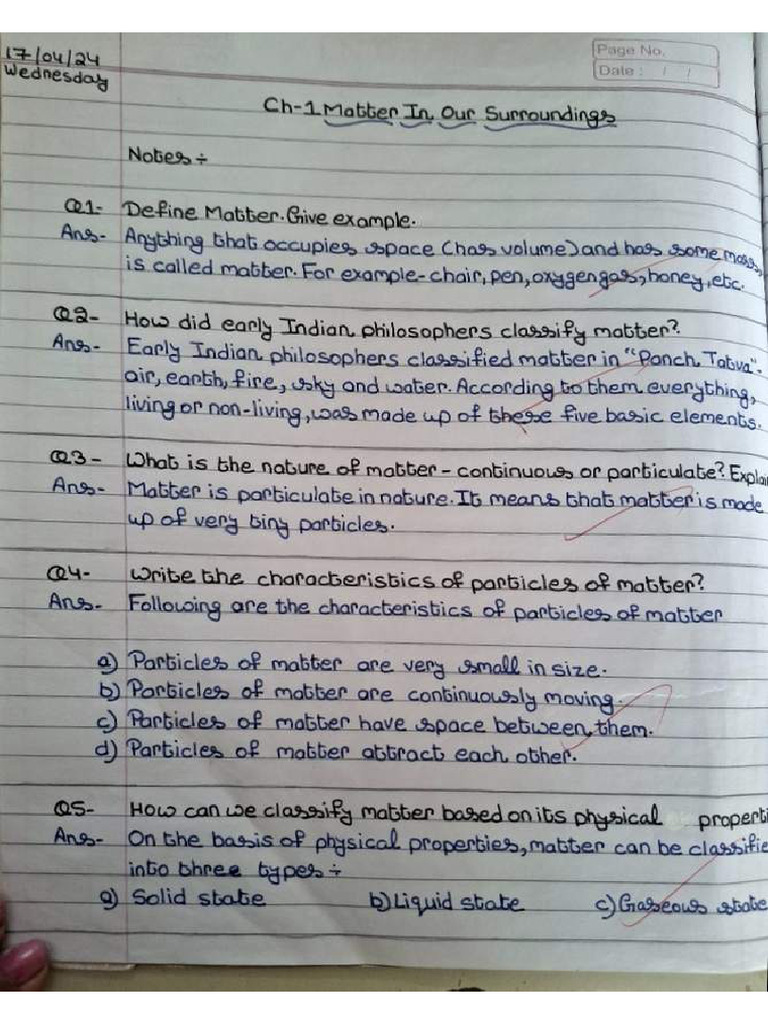 17/04/24
Wednesday
Page No.
Date : / /
Ch-1 Matter In Our Surroundings
Notes ÷
Q1- Define Matter. Give example.
Ans- Anything that occupies space (has volume) and has some mass,
is called matter. For example- chair, pen, oxygen gas, honey, etc.
Q2- How did early Indian philosophers classify matter?
Ans- Early Indian philosophers classified matter in "Panch Tatva".
air, earth, fire, sky and water. According to them everything,
living or non-living, was made up of these five basic elements.
Q3- What is the nature of matter - continuous or particulate? Explai
Ans- Matter is particulate in nature. It means that matter is made
up of very tiny particles.
Q4- Write the characteristics of particles of matter?
Ans- Following are the characteristics of particles of matter
a) Particles of matter are very small in size.
b) Particles of matter are continuously moving.
c) Particles of matter have space between them.
d) Particles of matter attract each other.
Q5- How can we classify matter based on its physical properti
Ans- On the basis of physical properties, matter can be classifie
into three types ÷
a) Solid state b) Liquid state c) Gaseous state